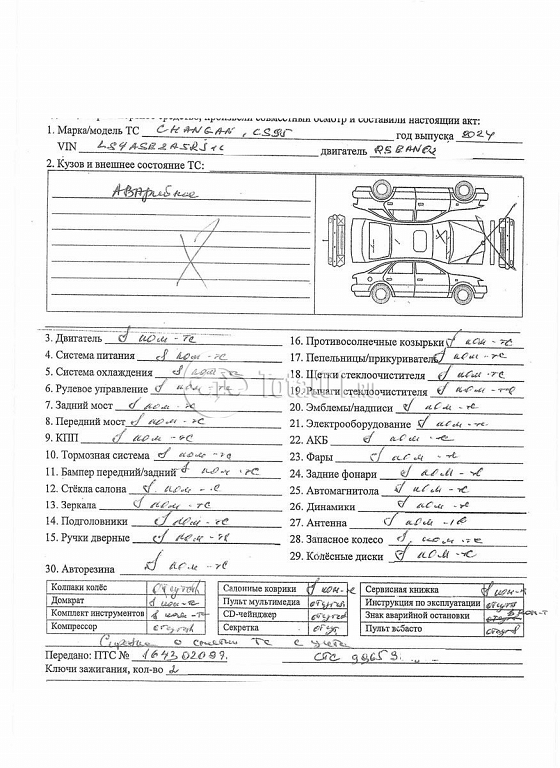 произвели совместный осмотр и составили настоящий акт:
1. Марка/модель ТС CHANGAN, CS95 год выпуска 2024
VIN двигатель
2. Кузов и внешнее состояние ТС:
Аварийное
3. Двигатель в ком-те
4. Система питания в ком-те
5. Система охлаждения в ком-те
6. Рулевое управление в ком-те
7. Задний мост в ком-те
8. Передний мост в ком-те
9. КПП в ком-те
10. Тормозная система в ком-те
11. Бампер передний/задний в ком-те
12. Стёкла салона в ком-те
13. Зеркала в ком-те
14. Подголовники в ком-те
15. Ручки дверные в ком-те
16. Противосолнечные козырьки в ком-те
17. Пепельницы/прикуриватель в ком-те
18. Щетки стеклоочистителя в ком-те
19. Рычаги стеклоочистителя в ком-те
20. Эмблемы/надписи в ком-те
21. Электрооборудование в ком-те
22. АКБ в ком-те
23. Фары в ком-те
24. Задние фонари в ком-те
25. Автомагнитола в ком-те
26. Динамики в ком-те
27. Антенна в ком-те
28. Запасное колесо в ком-те
29. Колёсные диски в ком-те
30. Авторезина в ком-те
Колпаки колёс отсутв Салонные коврики в ком-те Сервисная книжка в ком-т
Домкрат в ком-те Пульт мультимедиа отсутв Инструкция по эксплуатации
Комплект инструментов в ком-те CD-чейнджер отсутв Знак аварийной остановки
Компрессор отсутв Секретка отсутв Пульт вебасто отсутв
о снятии ТС с учета
Передано: ПТС № 164302099. СТС 99653
Ключи зажигания, кол-во 2